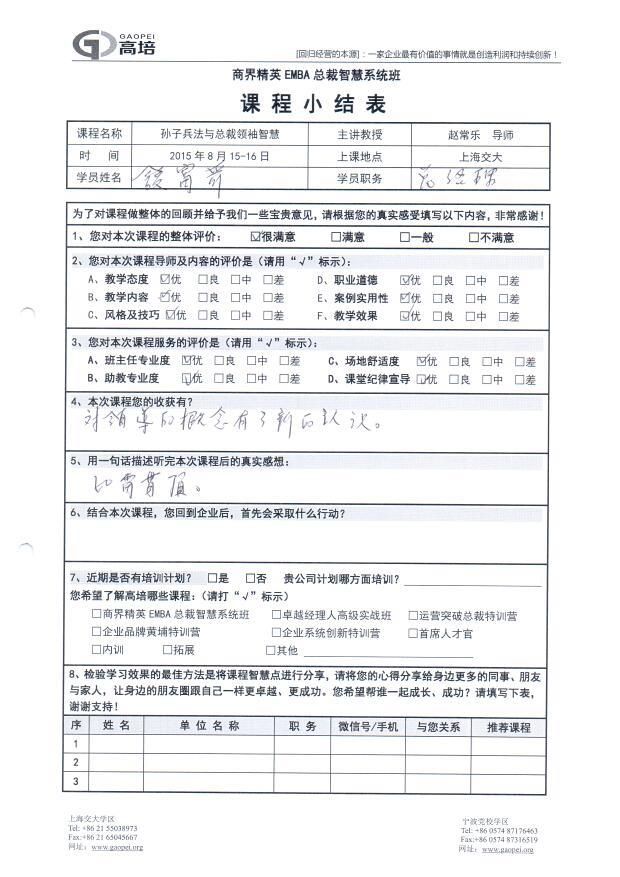 GAOPEI
高培
[回归经营的本源]：一家企业最有价值的事情就是创造利润和持续创新！
商界精英 EMBA 总裁智慧系统班
课程小结表
课程名称 孙子兵法与总裁领袖智慧 主讲教授 赵常乐 导师
时 间 2015年8月15-16日 上课地点 上海交大
学员姓名 学员职务
为了对课程做整体的回顾并给予我们一些宝贵意见，请根据您的真实感受填写以下内容，非常感谢！
1、您对本次课程的整体评价： ☑很满意 □满意 □一般 □不满意
2、您对本次课程导师及内容的评价是（请用“√”标示）：
A、教学态度 ☑优 □良 □中 □差 D、职业道德 ☑优 □良 □中 □差
B、教学内容 ☑优 □良 □中 □差 E、案例实用性 ☑优 □良 □中 □差
C、风格及技巧 ☑优 □良 □中 □差 F、教学效果 ☑优 □良 □中 □差
3、您对本次课程服务的评价是（请用“√”标示）：
A、班主任专业度 ☑优 □良 □中 □差 C、场地舒适度 ☑优 □良 □中 □差
B、助教专业度 ☑优 □良 □中 □差 D、课堂纪律宣导 ☑优 □良 □中 □差
4、本次课程您的收获有？
对领导的概念有了新的认识。
5、用一句话描述听完本次课程后的真实感想：
6、结合本次课程，您回到企业后，首先会采取什么行动？
7、近期是否有培训计划？ □是 □否 贵公司计划哪方面培训？
您希望了解高培哪些课程：（请打“√”标示）
□商界精英 EMBA 总裁智慧系统班 □卓越经理人高级实战班 □运营突破总裁特训营
□企业品牌黄埔特训营 □企业系统创新特训营 □首席人才官
□内训 □拓展 □其他
8、检验学习效果的最佳方法是将课程智慧点进行分享，请将您的心得分享给身边更多的同事、朋友
与家人，让身边的朋友圈跟自己一样更卓越、更成功。您希望帮谁一起成长、成功？请填写下表，
谢谢支持！
序 姓名 单位名称 职务 微信号/手机 与您关系 推荐课程
1
2
3
上海交大学区 宁波党校学区
Tel: +86 21 55038973 Tel: +86 0574 87176463
Fax:+86 21 65045667 Fax:+86 0574 87316519
网址：www.gaopei.org 网址：www.gaopei.org